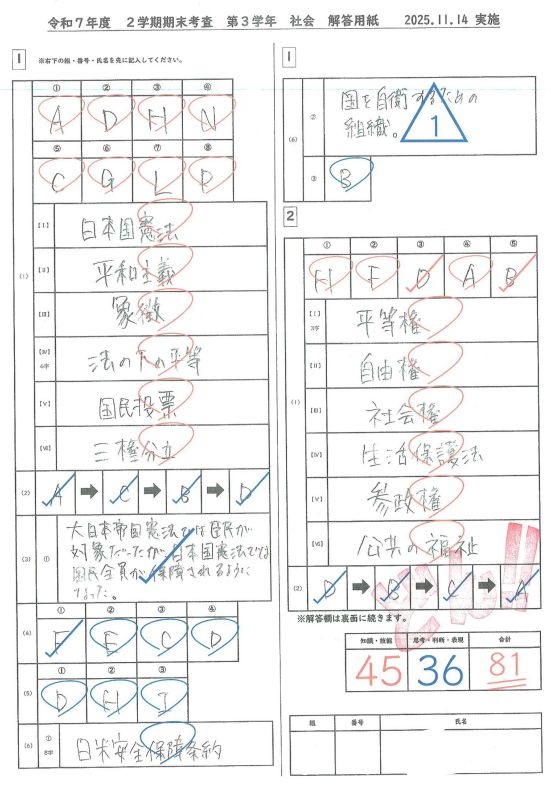 令和７年度　２学期期末考査　第３学年　社会　解答用紙　2025.11.14 実施
1
※右下の組・番号・氏名を先に記入してください。
① ② ③ ④
A D H N
⑤ ⑥ ⑦ ⑧
C G L P
(1)
【Ⅰ】 日本国憲法
【Ⅱ】 平和主義
【Ⅲ】 象徴
【Ⅳ】 6字 法の下の平等
【Ⅴ】 国民投票
【Ⅵ】 三権分立
(2) A ➡ C ➡ B ➡ D
(3) ①
大日本帝国憲法では臣民が
対象だったが、日本国憲法では
国民全員が保障されるように
なった。
① ② ③ ④
(4) F E C D
① ② ③
(5) D H I
(6) ① 8字 日米安全保障条約
1
(6) ② 国を自衛するための
組織。
1
③ B
2
① ② ③ ④ ⑤
H F D A B
(1)
【Ⅰ】 3字 平等権
【Ⅱ】 自由権
【Ⅲ】 社会権
【Ⅳ】 生活保護法
【Ⅴ】 参政権
【Ⅵ】 公共の福祉
(2) D ➡ B ➡ C ➡ A
※解答欄は裏面に続きます。
知識・技能 思考・判断・表現 合計
45 36 81
組 番号 氏名